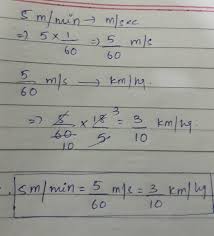 5 m/min → m/sec
⇒ 5 × 1/60 ⇒ 5/60 m/s
5/60 m/s → km/hr.
⇒ 5/60 10 × 18 3/5 = 3/10 km/hr
5m/min = 5/60 m/s = 3/10 km/hr